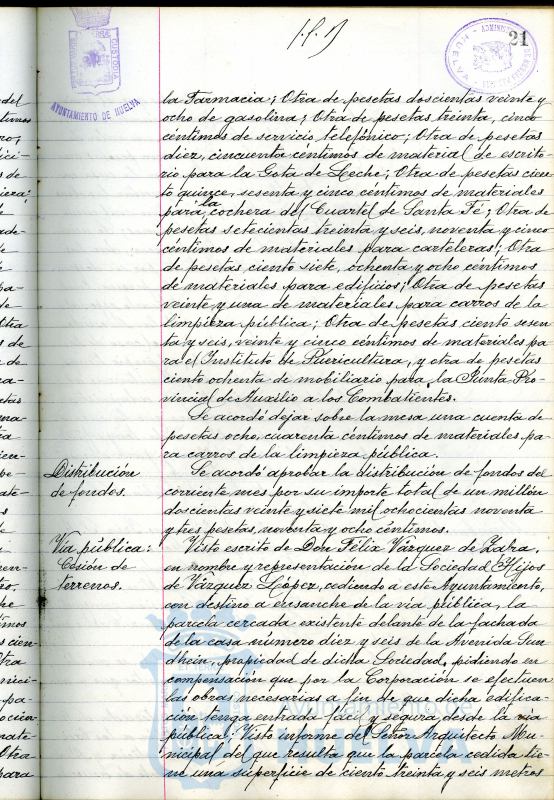 21
CUSTODIA
AYUNTAMIENTO DE HUELVA
la Farmacia; Otra de pesetas doscientas veinte y
ocho de gasolina; Otra de pesetas treinta, cinco
céntimos de servicio telefónico; Otra de pesetas
diez, cincuenta centimos de material de escrito
rio para la Gota de Leche; Otra de pesetas cien
to quince, sesenta y cinco centimos de materiales
para la cochera del Cuartel de Santa Fé; Otra de
pesetas setecientas treinta y seis, noventa y cinco
céntimos de materiales para carteleras; Otra
de pesetas ciento siete, ochenta y ocho céntimos
de materiales para edificios; Otra de pesetas
veinte y una de materiales para carros de la
limpieza pública; Otra de pesetas ciento sesen
ta y seis, veinte y cinco céntimos de materiales pa
ra el Instituto de Puericultura, y otra de pesetas
ciento ochenta de mobiliario para la Junta Pro-
vincial de Auxilio a los Combatientes.
Se acordó dejar sobre la mesa una cuenta de
pesetas ocho, cuarenta céntimos de materiales pa-
ra carros de la limpieza pública.
Distribución
de fondos.
Se acordó aprobar la distribución de fondos del
corriente mes por su importe total de un millón
doscientas veinte y siete mil ochocientas noventa
y tres pesetas, noventa y ocho céntimos.
Vía pública:
Cesión de
terrenos.
Visto escrito de Don Félix Vázquez de Zafra,
en nombre y representación de la Sociedad Hijos
de Vázquez López, cediendo a este Ayuntamiento,
con destino a ensanche de la via pública, la
parcela cercada existente delante de la fachada
de la casa número diez y seis de la Avenida Sun
dhein, propiedad de dicha Sociedad, pidiendo en
compensación que por la Corporación se efectuen
las obras necesarias a fin de que dicha edifica-
ción tenga entrada fácil y segura desde la via
pública; Visto informe del Señor Arquitecto Mu-
nicipal del que resulta que la parcela cedida tie-
ne una superficie de ciento treinta y seis metros
Ayuntamiento de
HUELVA